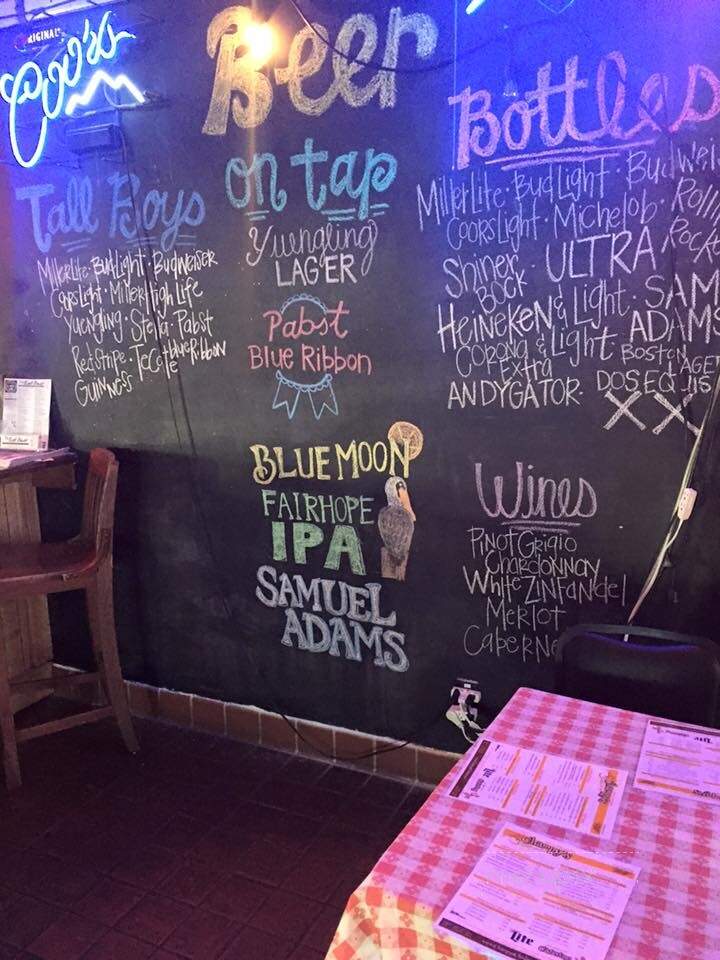 ORIGINAL
Coors
Beer
Tall Boys
Miller Lite · Bud Light · Budweiser
Coors Light · Miller High Life
Yuengling · Stella · Pabst
Red Stripe · Tecate Blue Ribbon
GUINNESS
on tap
Yuengling
LAGER
Pabst
Blue Ribbon
BLUE MOON
FAIRHOPE
IPA
SAMUEL
ADAMS
Bottles
Miller Lite · Bud Light · Budwei
Coors Light · Michelob · Rolli
Shiner BOCK · ULTRA Rock
HEINEKEN & Light · SAM
Corona Extra & Light ADAMS
BOSTON LAGER
ANDYGATOR · DOS EQUIS
XX
Wines
PINOT GRIGIO
CHARDONNAY
WHITE ZINFANDEL
MERLOT
CABERNE
Lite